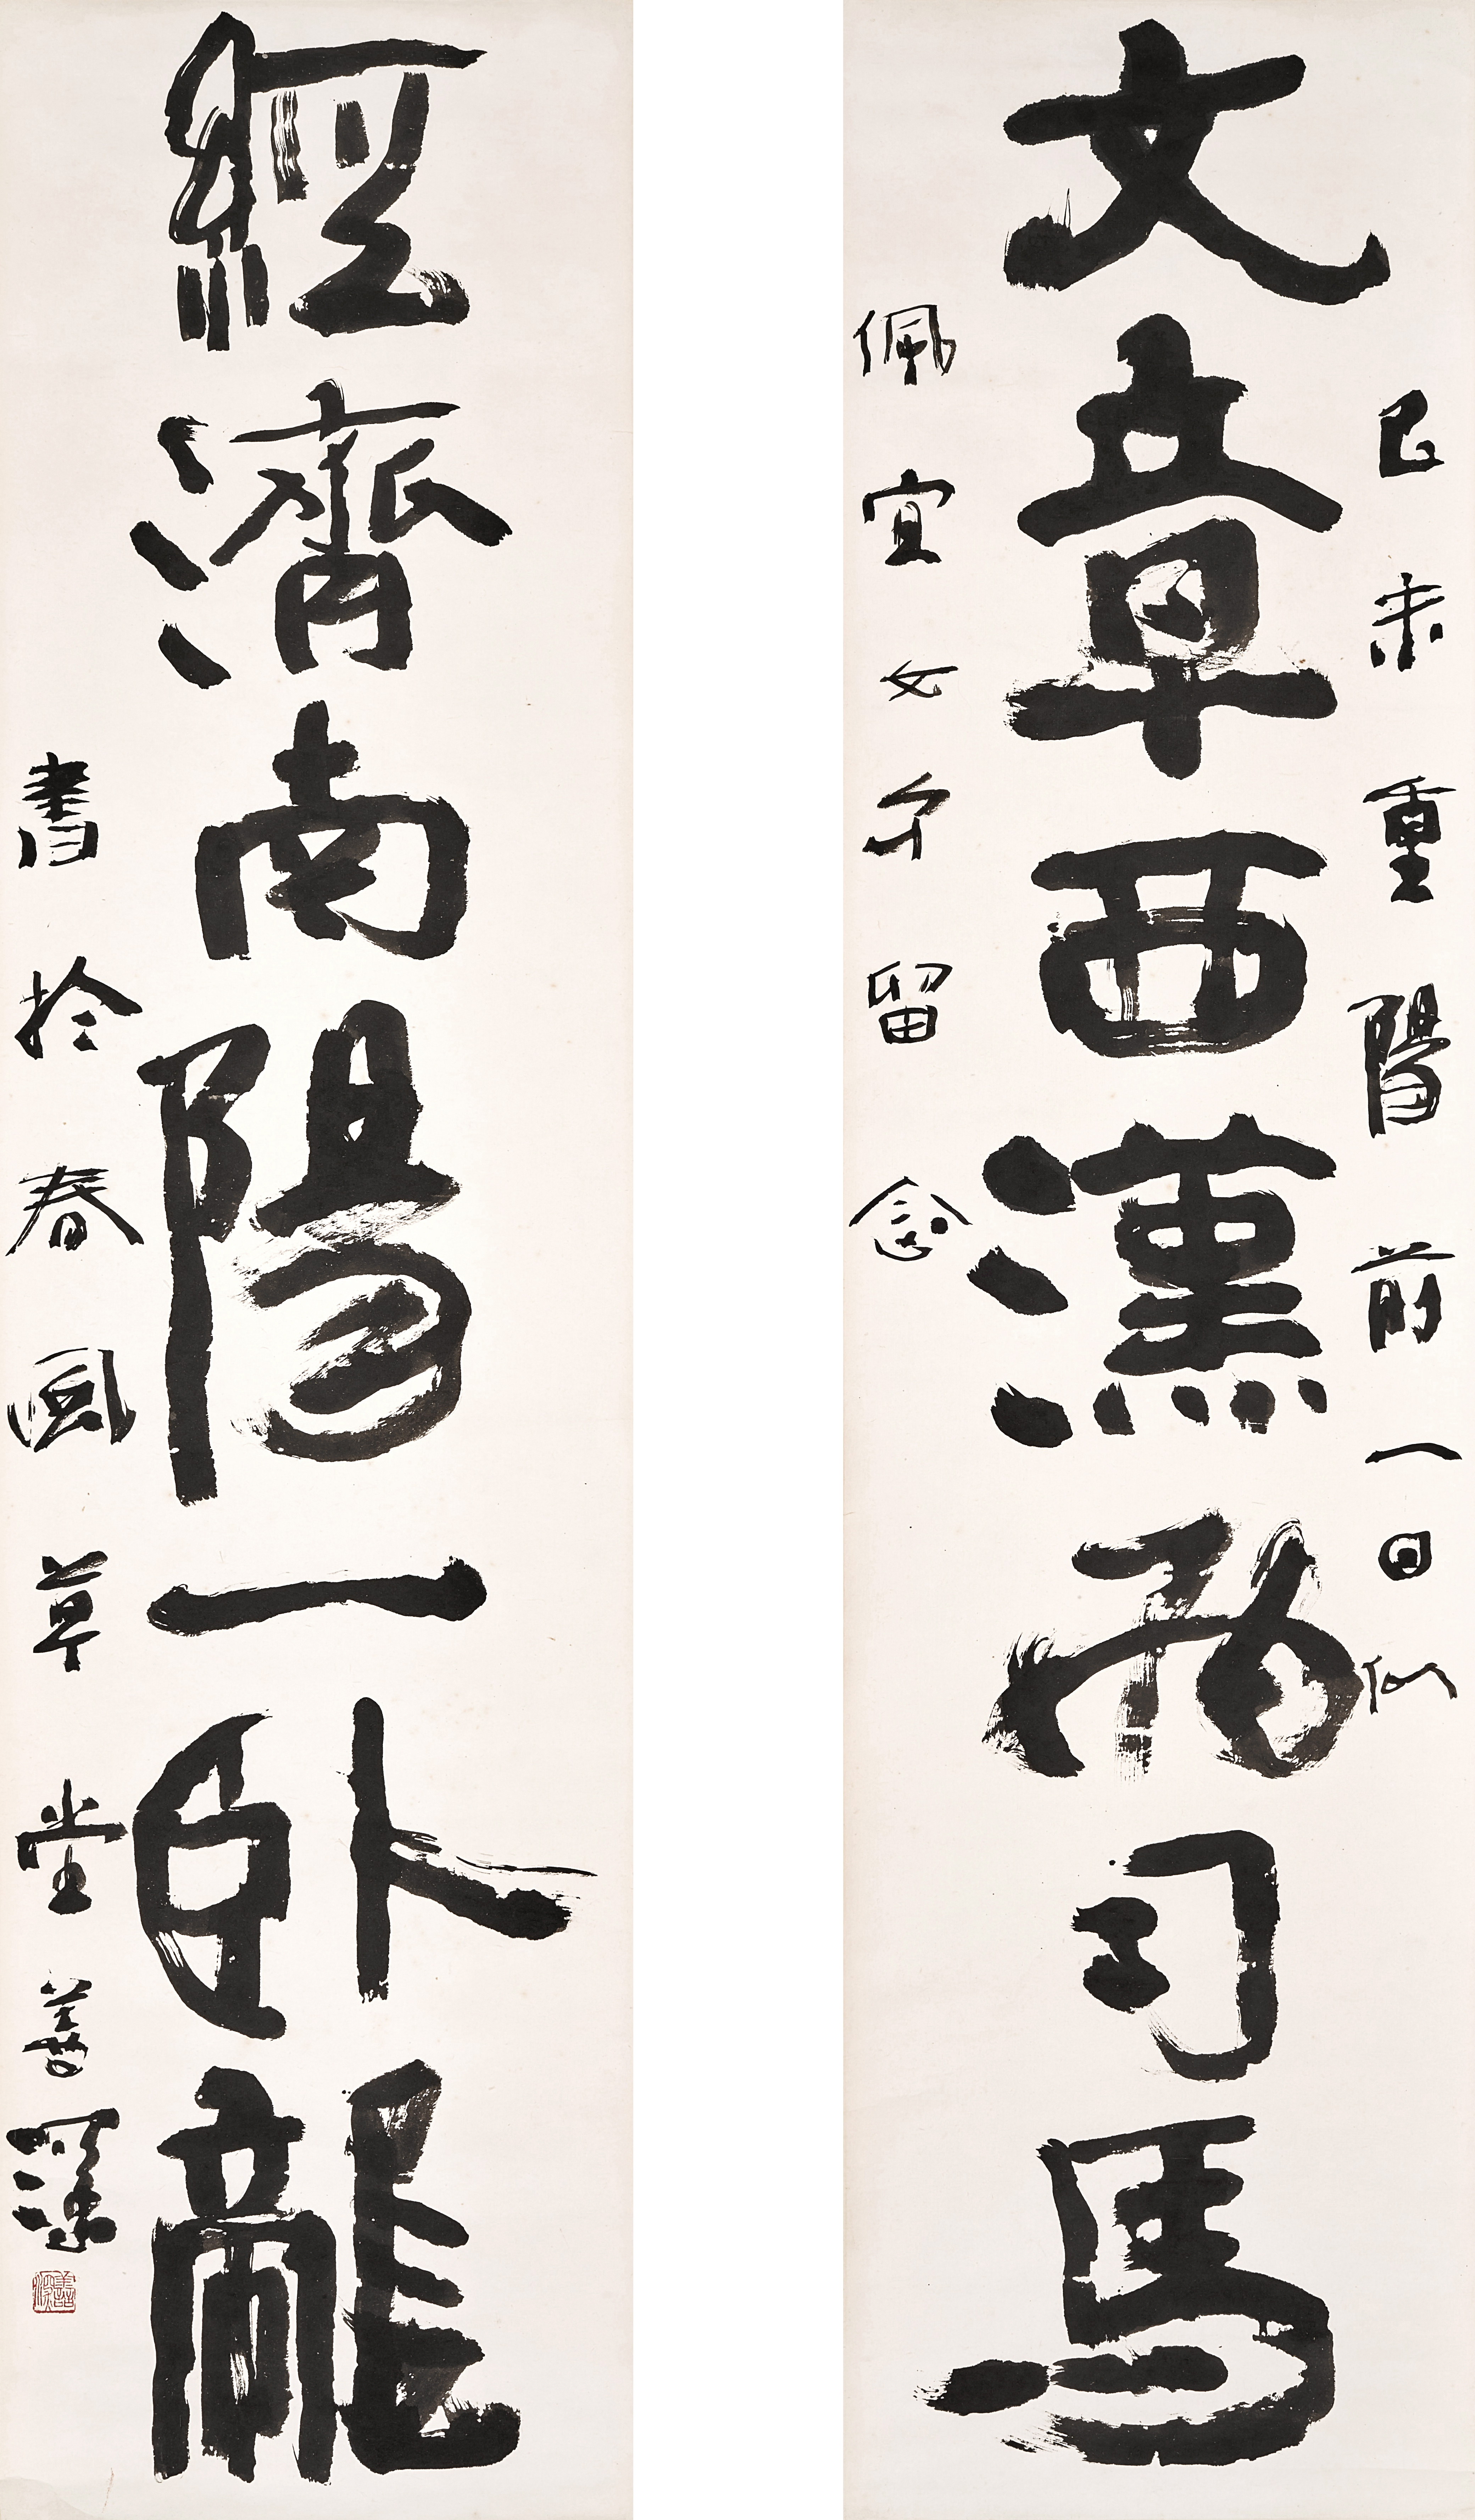 己未重陽前一日似
文章西漢兩司馬
佩宜女弟留念
經濟南陽一卧龍
書扵春風草堂善深